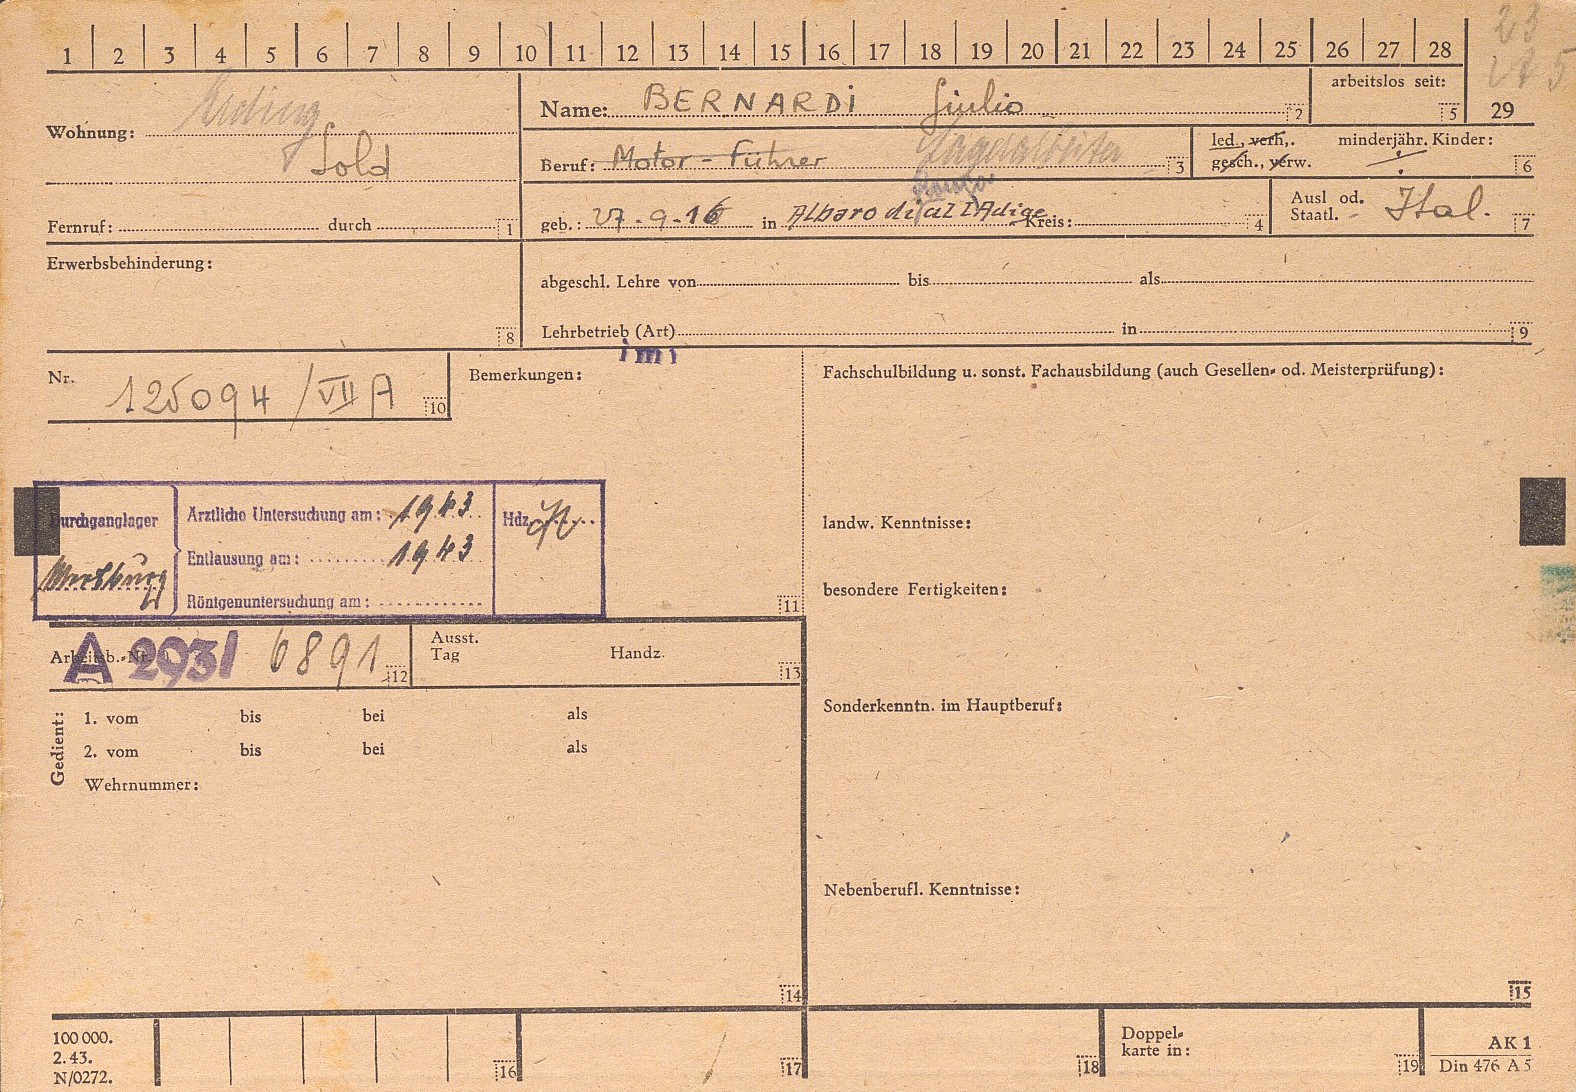 1 2 3 4 5 6 7 8 9 10 11 12 13 14 15 16 17 18 19 20 21 22 23 24 25 26 27 28
23
arbeitslos seit: 5
29
Name: BERNARDI Giulio 2
Wohnung: Erding
Sold
Beruf: Motor-Führer 3
led., verh., gesch., verw.
minderjähr. Kinder: 6
Fernruf: durch 1
geb.: 27-9-16 in Albaro di al l'Adige Kreis: 4
Ausl od. Staatl. Ital. 7
Erwerbsbehinderung: 8
abgeschl. Lehre von bis als
Lehrbetrieb (Art) in 9
Nr. 125094/VII A 10
Bemerkungen:
Fachschulbildung u. sonst. Fachausbildung (auch Gesellen- od. Meisterprüfung):
Durchganglager
Ärztliche Untersuchung am: 1943
Hdz.
Entlausung am: 1943
Röntgenuntersuchung am:
11
landw. Kenntnisse:
besondere Fertigkeiten:
Arbeitsb.-Nr. A 293/ 6891 12
Ausst. Tag
Handz. 13
Sonderkenntn. im Hauptberuf:
Gedient:
1. vom bis bei als
2. vom bis bei als
Wehrnummer:
Nebenberufl. Kenntnisse:
14
15
100 000.
2. 43.
N/0272.
16
17
18
Doppel-
karte in:
19
AK 1
Din 476 A 5